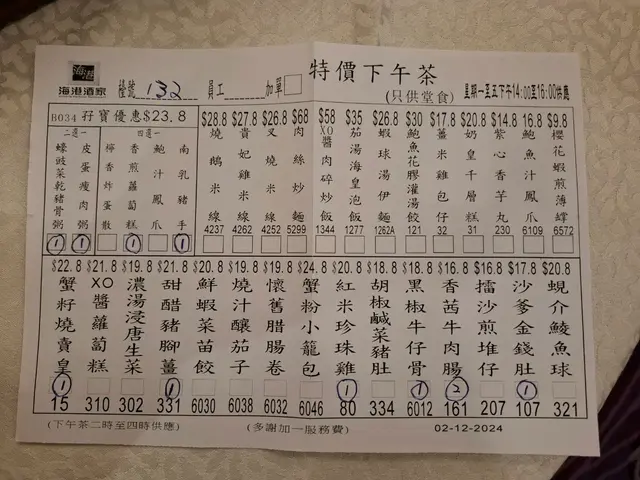 海港
海港酒家
檯號 132
員工
加單
特價下午茶
(只供堂食)
星期一至五下午14:00至16:00供應
B034 孖寶優惠$23.8
二選一
四選一
蠔豉菜乾豬骨粥 ①
皮蛋瘦肉粥 ①
檸香炸蛋散
香煎蘿蔔糕 ①
鮑汁鳳爪
南乳豬手 ①
$28.8 燒鵝米線 4237
$27.8 貴妃雞米線 4262
$26.8 叉燒米線 4252
$68 肉絲炒麵 5299
$58 XO醬肉碎炒飯 1344
$35 茄湯海皇泡飯 1277
$26.8 蝦球湯伊麵 1262A
$30 鮑魚花膠灌湯餃 121
$17.8 薑米雞包仔 32
$20.8 奶皇千層糕 31
$14.8 紫心香芋丸 230
$16.8 鮑魚汁鳳爪 6109
$9.8 櫻花蝦煎薄罉 6572
$22.8 蟹籽燒賣皇 ① 15
$21.8 XO醬蘿蔔糕 310
$19.8 濃湯浸唐生菜 302
$21.8 甜醋豬腳薑 ① 331
$20.8 鮮蝦菜苗餃 6030
$19.8 燒汁釀茄子 6038
$19.8 懷舊腊腸卷 6032
$24.8 蟹粉小籠包 6046
$20.8 紅米珍珠雞 ① 80
$18.8 胡椒鹹菜豬肚 334
$18.8 黑椒牛仔骨 ① 6012
$16.8 香茜牛肉腸 ② 161
$16.8 擂沙煎堆仔 207
$17.8 沙爹金錢肚 ① 107
$20.8 蜆介鯪魚球 321
(下午茶二時至四時供應)
(多謝加一服務費)
02-12-2024